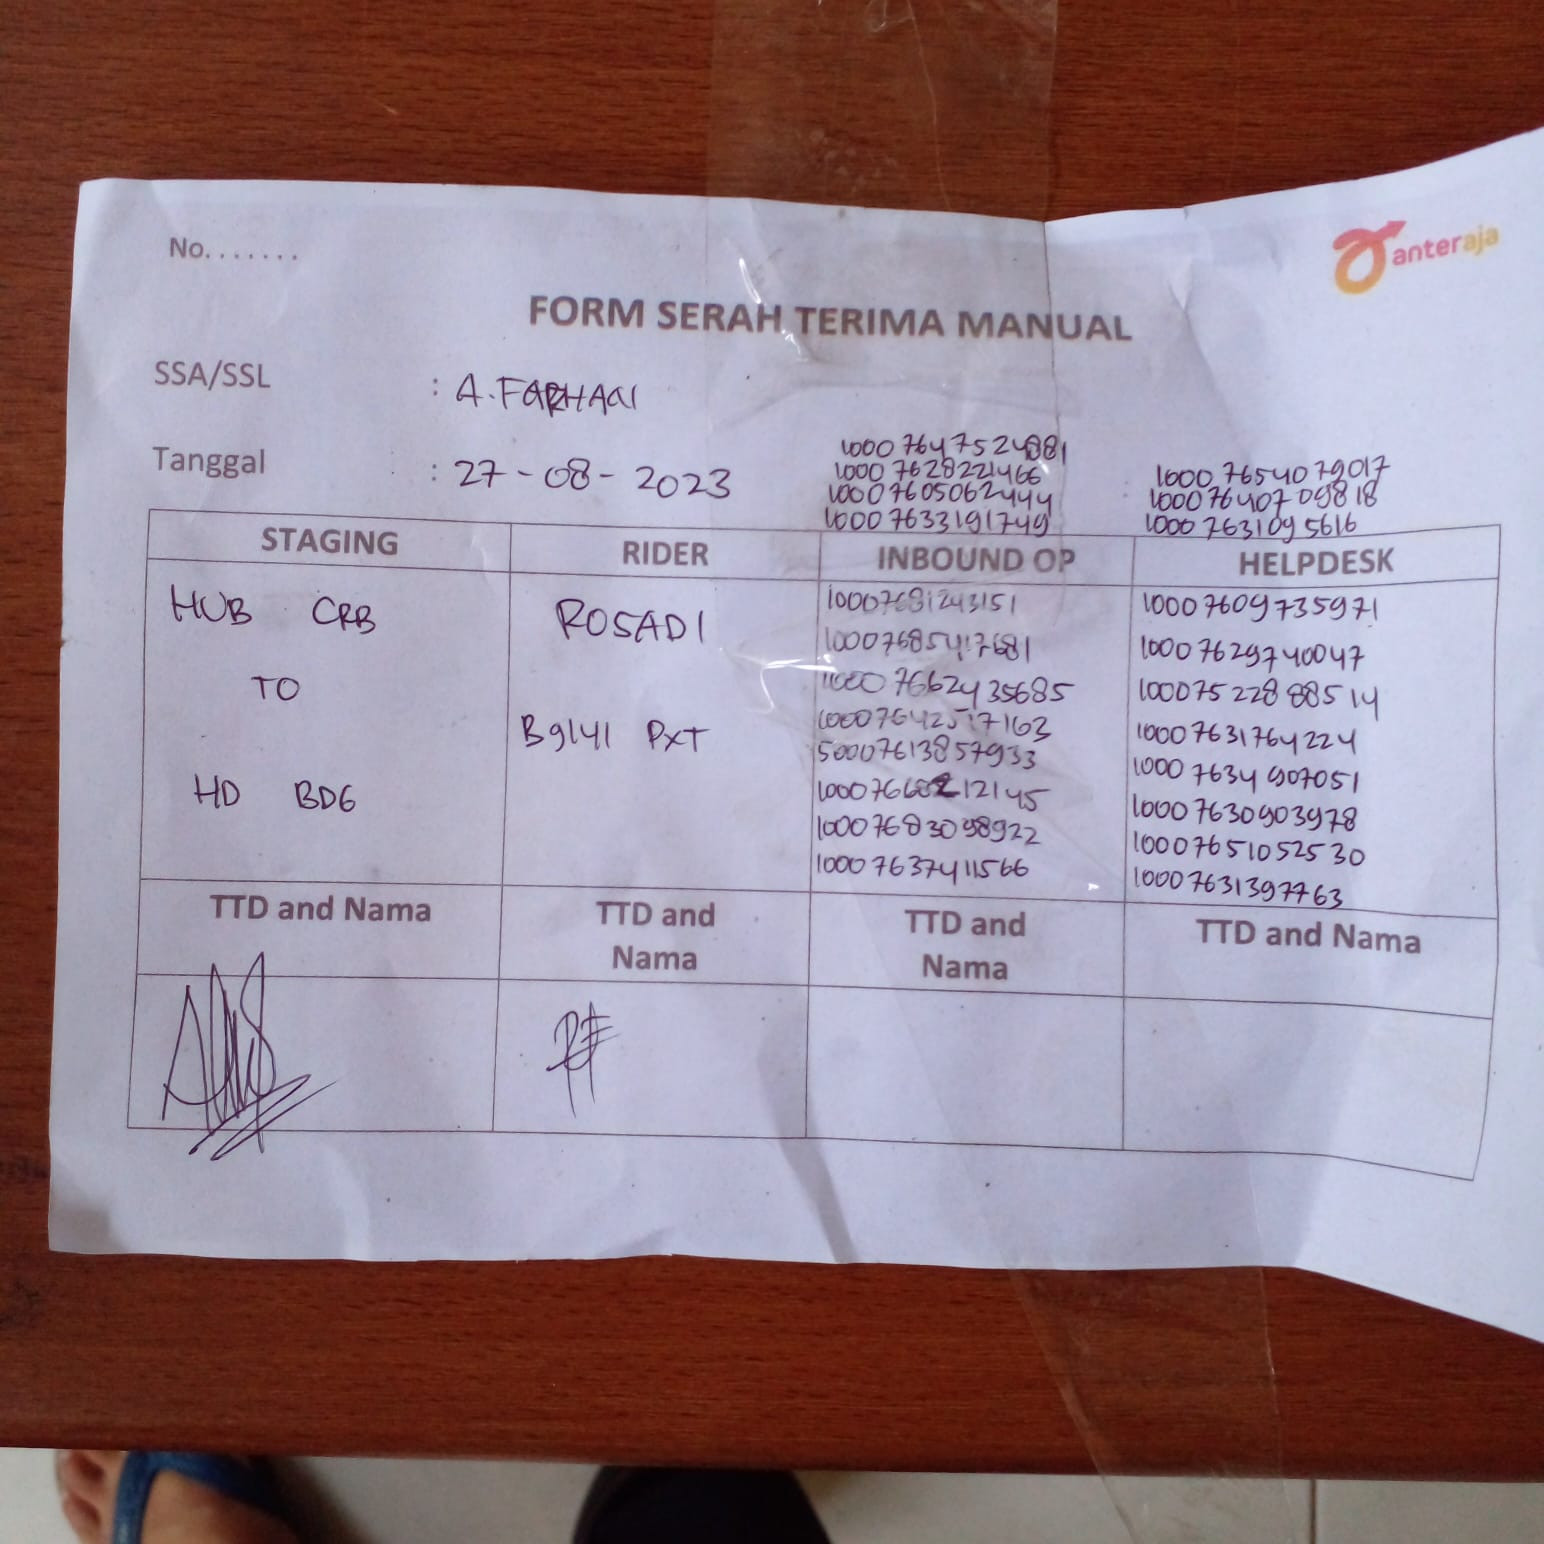 No.......
anteraja
FORM SERAH TERIMA MANUAL
SSA/SSL : A. FARHAN
Tanggal : 27-08-2023
10007647524881
10007628221466
10007605062444
10007633191749
10007654079017
10007640709818
10007631095616
STAGING RIDER INBOUND OP HELPDESK
HUB CRB
TO
HD BDG
ROSADI
B9141 PXT
10007681243151
10007685417681
10007662435685
10007642517163
50007613857933
10007683098922
10007637411566
10007609735971
10007629740047
10007522888514
10007631764224
10007634907051
10007630903978
10007651052530
10007631397763
TTD and Nama
TTD and
Nama
TTD and
Nama
TTD and Nama